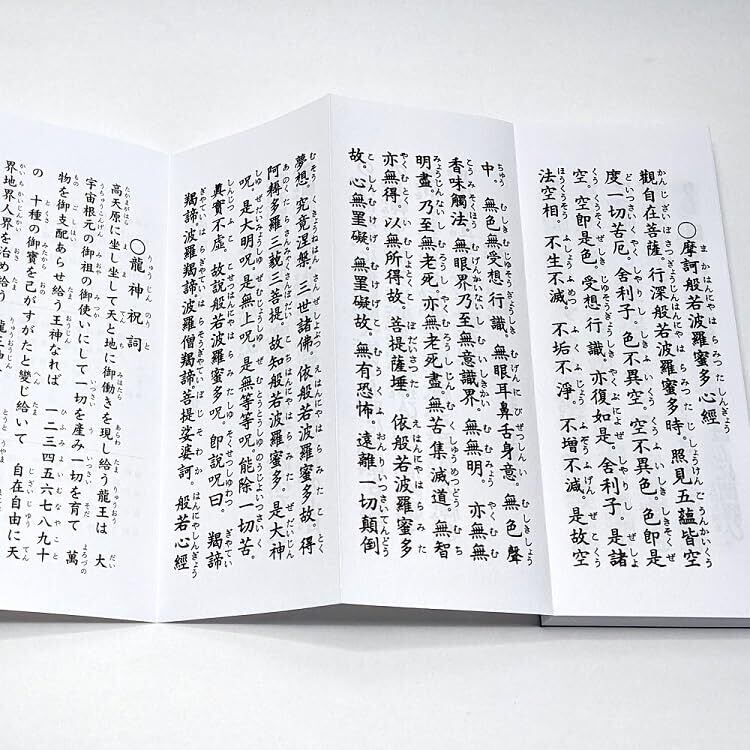 〇摩訶般若波羅蜜多心經
觀自在菩薩。行深般若波羅蜜多時。照見五蘊皆空
度一切苦厄。舍利子。色不異空。空不異色。色即是
空。空即是色。受想行識。亦復如是。舍利子。是諸
法空相。不生不滅。不垢不淨。不增不減。是故空
中。無色無受想行識。無眼耳鼻舌身意。無色聲
香味觸法。無眼界乃至無意識界。無無明。亦無無
明盡。乃至無老死。亦無老死盡。無苦集滅道。無智
亦無得。以無所得故。菩提薩埵。依般若波羅蜜多
故。心無罣礙。無罣礙故。無有恐怖。遠離一切顛倒
夢想。究竟涅槃。三世諸佛。依般若波羅蜜多故。得
阿耨多羅三藐三菩提。故知般若波羅蜜多。是大神
呪。是大明呪。是無上呪。是無等等呪。能除一切苦。
真實不虛。故說般若波羅蜜多呪。即說呪曰。羯諦
羯諦波羅羯諦波羅僧羯諦。菩提娑婆訶。般若心經
〇龍神祝詞
高天原に坐し坐して天と地に御働きを現し給う龍王は 大
宇宙根元の御祖の御使いにして一切を産み一切を育て 萬
物を御支配あらせ給う王神なれば 一二三四五六七八九十
の 十種の御寶を己がすがたと變じ給いて 自在自由に天
界地界人界を治め給う